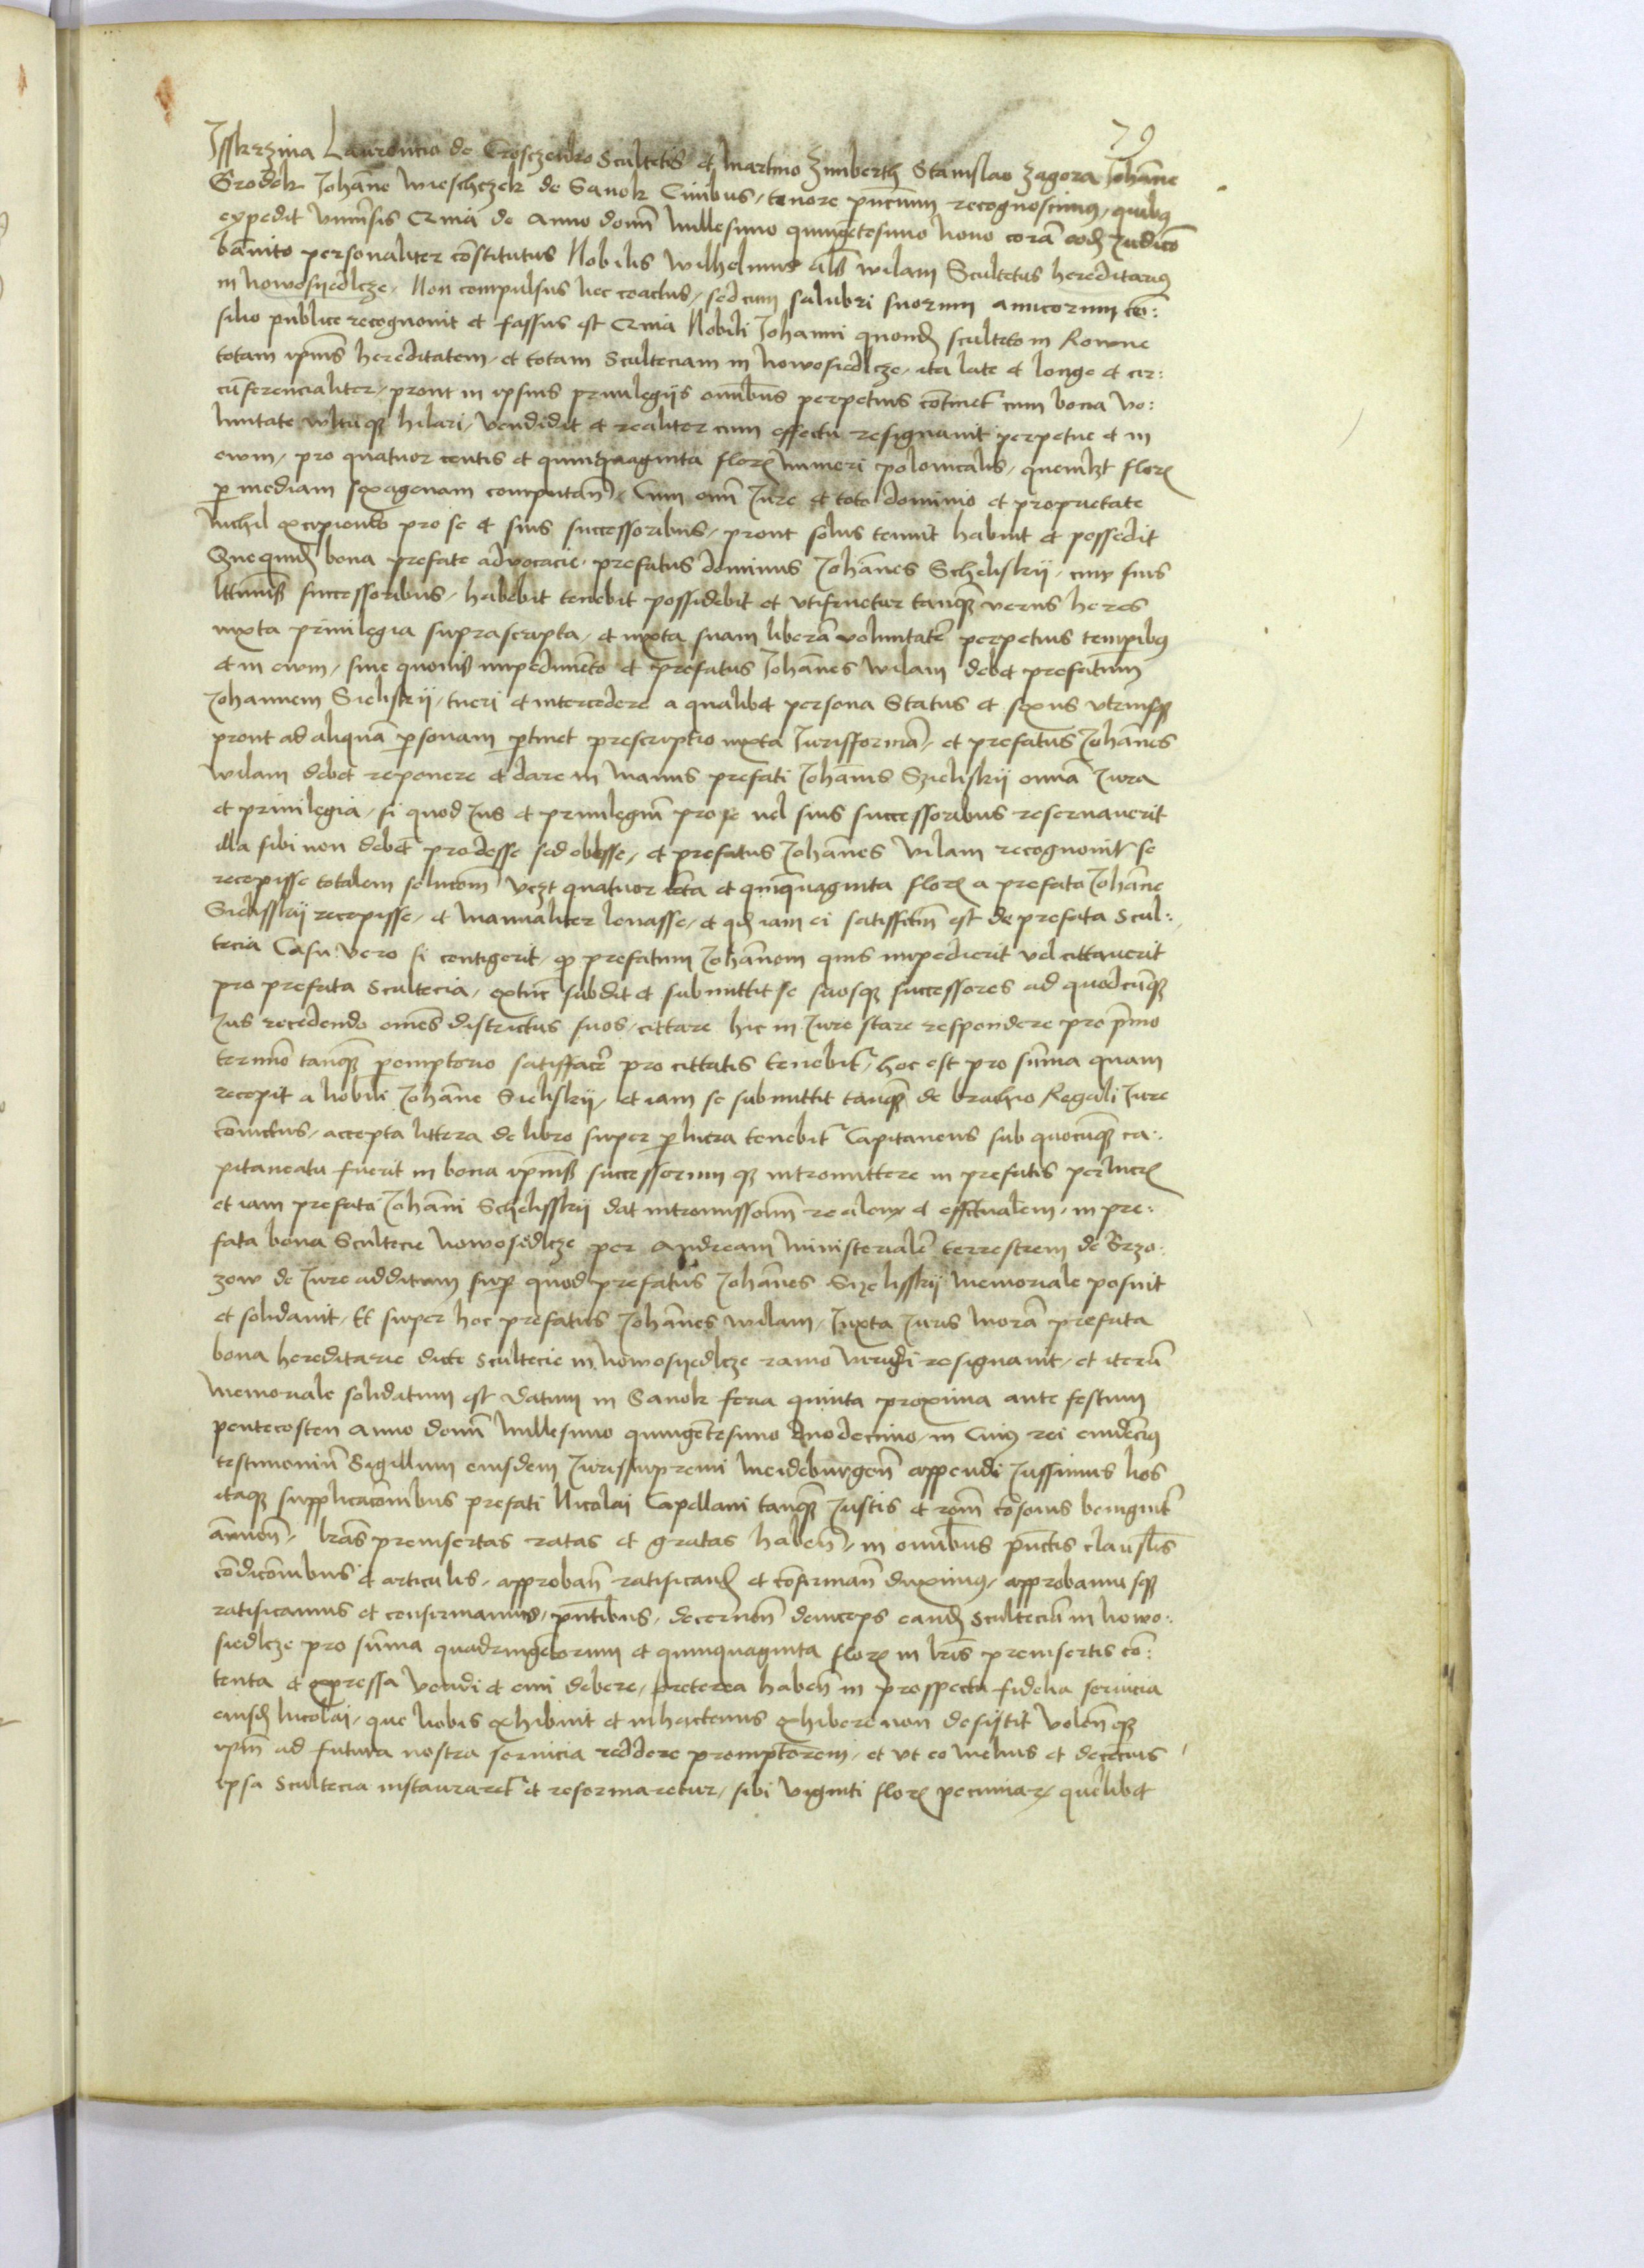 79
Isskrzina Laurencio de Crosczenko Scultetis et Martino Zimberth Stanislao Zagora Johāne
Grodek Johāne Wieschczek de Sanok Civibus, tenore pñcium recognoscimus, quibus
expedit Vniūsis Qmā de Anno domī Millesimo quingētesimo Nono corā eodē Judicō
bānito personaliter cōstitutus Nobilis Wilhelmus als Wilam Scultetus hereditarius
in Nowosyedlcze, Non compulsus nec coactus, sed cum salubri suorum amicorum cō:
silio publice recognovit et fassus est Qmā Nobili Johanni quondā sculteto in Rowne
totam ipīus hereditatem, et totam Sculteciam in Nowosiedlcze, ita late et longe et cir:
cūferencialiter, prout in ipsius privilegijs omībus perpetuis cōtinetr cum bona vo:
luntate vltuqz hilari, vendidit et realiter cum effectu resignavit perpetue et in
ewm, pro quatuor centis et quinquaginta flor Numeri polonicalis, quemlzt flor
p mediam sexagenam computañ, Cum omī Jure et toto dominio et proprietate
Nichil excipiendo pro se et suis successoribus, prout solus tenuit habuit et possedit
Que quidē bona prefate advocacie, prefatus dominus Johānes Schelisskij, cum suis
lttimis successoribus, habebit tenebit possidebit et vtifruetur tanqz verus heres
iuxta privilegia suprascripta, et iuxta suam liberā voluntatē perpetuis tempibus
et in ewm, sine quovis impedimēto et prefatus Johānes Wilam debet prefatum
Johannem Sieliskij, tueri et intercedere a qualibet persona Status et sexus vtriusqz
prout ad aliquā psonam ptinet prescriptio iuxta Jurisformā, et prefatus Johānes
Wilam debet reponere et dare in manus prefati Johānis Szieliskij omīa Jura
et privilegia, si quod Jus et privilegiū pro se vel suis successoribus reservaverit
illa sibi non debēt prodesse sed obesse, et prefatus Johānes Vilam recognovit se
recepisse totalem solucōm vczt quatuor cēta et quīquaginta flor a prefato Johāne
Sielisskij recepisse, et manualiter levasse, et qd iam ei satisfctm est de prefata Scul:
tecia Casu vero si contigerit, qp prefatum Johānem quis impedierit vel cittaverit
pro prefata Scultecia, extūc subdit et submittit se suosqz successores ad quodcūqz
Jus recedendo omēs districtus suos, cittare hic in Jure stare respondere pro pmo
termīo tanqz pemptorio satisffacē pro cittatis tenebitr, hoc est pro sūma quam
recepit a Nobili Johāne Sieliskij, et iam se submittit tanqz de brachio Regali Jure
cōvictus, accepta littera de libro super plucra tenebitr Capitaneus sub quocūqz ca:
pitaneatu fuerit in bona ipīus successorum qz intromittere in prefatis perlucr
et iam prefato Johāni Schelisskij dat intromissōm realem et effctualem, in pre:
fata bona Scultecie Nowosiedlcze per Andream Ministerialē terrestrem de Brzo:
zow de Jure additum sup quod prefatus Johānes Szelisskij Memoriale posuit
et solidavit, Et super hoc prefatus Johānes Wilam, Juxta Juris morā prefata
bona hereditarie dicte Scultecie in Nowosyedlcze ramo viridi resignavit, et iterū
Memoriale solidatum est Datum in Sanok feria quinta proxima ante festum
pentecosten Anno domī Millesimo quingētesimo duodecimo, in Cuius rei evidēcius
testimoniū Sigillum eiusdem Juris supremi Meideburgeñ appendi Jussimus Nos
itaqz supplicacōnibus prefati Nicolai Capellani tanqz Justis et rōni cōsonis benignitr
ānuen, lras preinsertas ratas et gratas habeñ, in omībus pūctis clauslis
cōdicōnibus et articulis, approbañ ratificand et cōfirmañ duximus, approbamusqz
ratificamus et confirmamus, pñtibus, decerneñ deinceps eandē Sculteciā in Nowo:
siedlcze pro sūma quadringētorum et quinquaginta flor in lris preinsertis cō:
tenta et expressa vendi et emi debere, preterea habeñ in prospectu fidelia servicia
eiusdē Nicolai, que Nobis exhibuit et inhactenus exhibere non desistit volenqz
ipm ad futura nostra servicia reddere promptiorem, et vt eo melius et decēcius
ipsa Scultecia instauraretr et reformaretur, sibi viginti flor pecuniar, quelibet